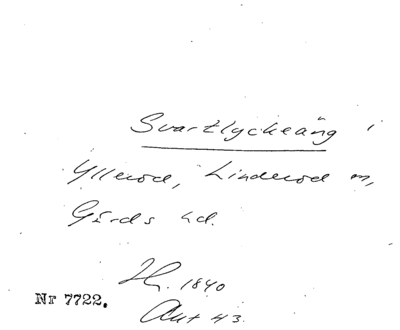 Svartlyckeäng i
Yllerod, Linderod sn,
Gärds hd.
H. 1840
Akt 43.
Nr 7722.